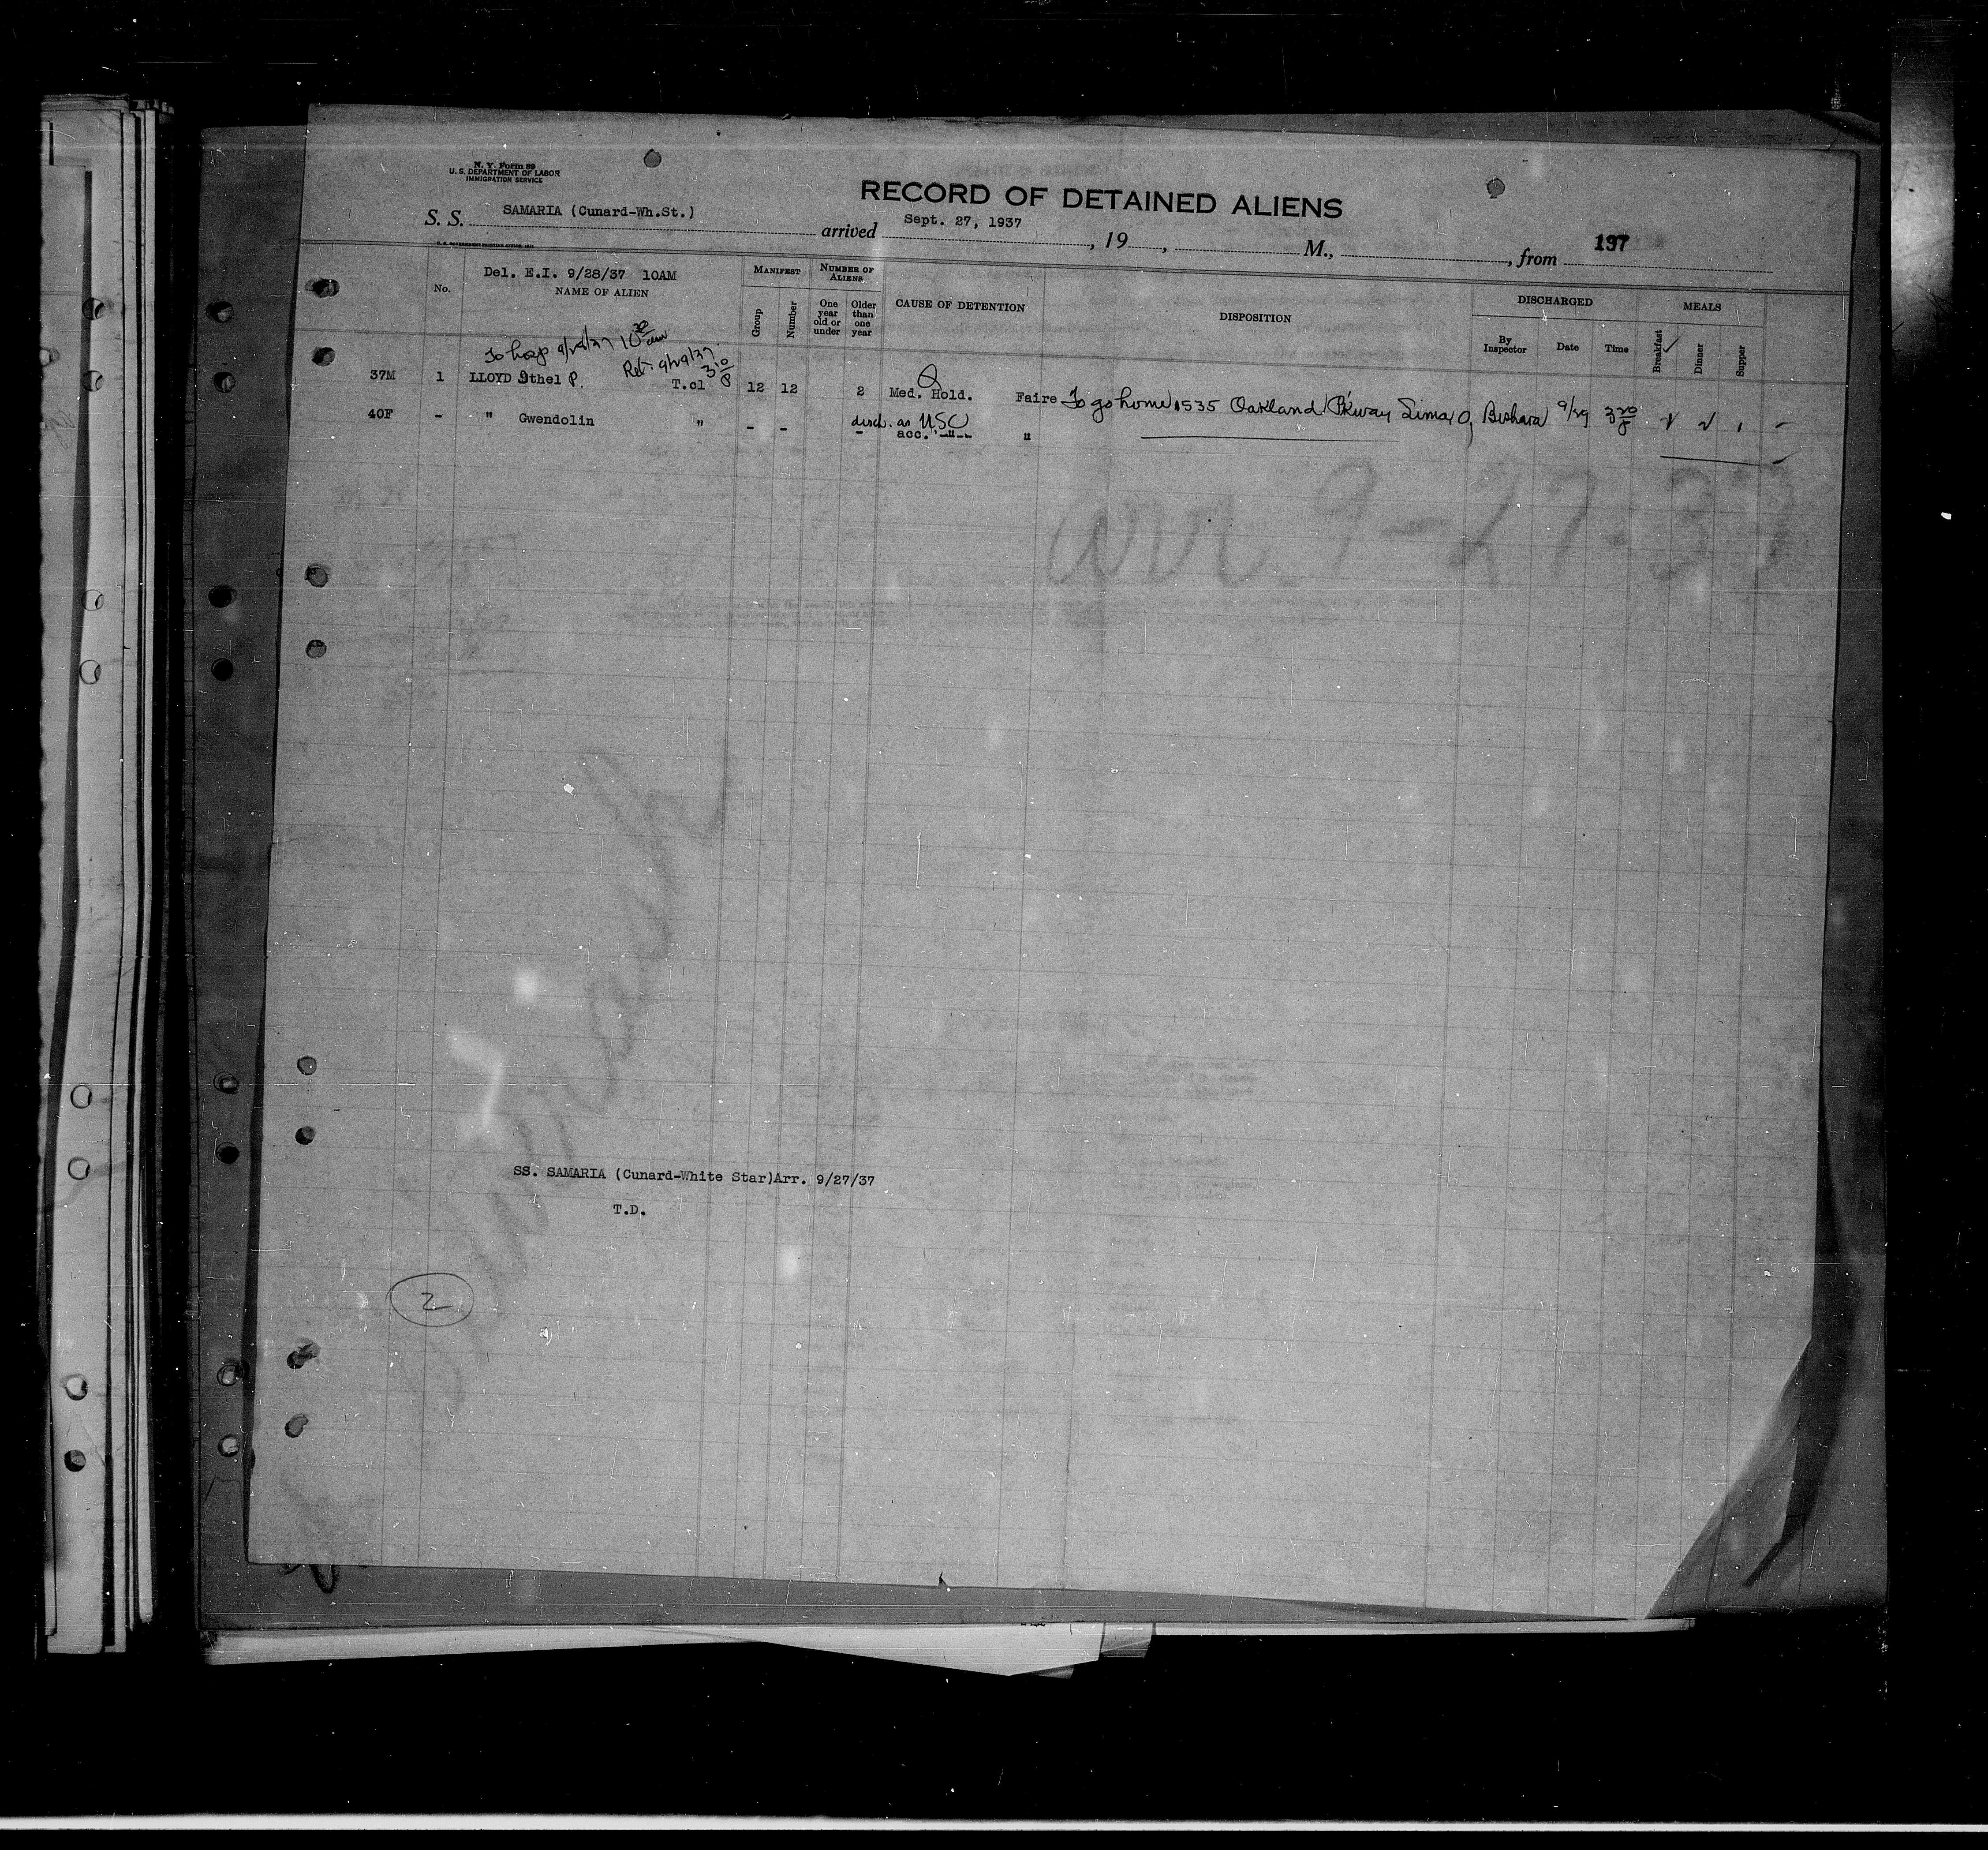 N. Y. Form 89
U. S. DEPARTMENT OF LABOR
IMMIGRATION SERVICE
RECORD OF DETAINED ALIENS
S. S. SAMARIA (Cunard-Wh.St.) arrived Sept. 27, 1937, 19, M., , from 137
Del. E.I. 9/28/37 10AM
No. NAME OF ALIEN MANIFEST Group Number NUMBER OF ALIENS One year old or under Older than one year CAUSE OF DETENTION DISPOSITION DISCHARGED By Inspector Date Time MEALS Breakfast Dinner Supper
To hosp 9/28/37 10 30 am
Ret. 9/29/37 3 10 P
37M 1 LLOYD Othel P. T.cl 12 12 2 Med. Hold. Faire To go home 1535 Oakland P'kway Lima, O, Beshara 9/29 3 20 P
disch. as USC
40F - " Gwendolin " - - - acc. -"- "
arr. 9-27-37
SS. SAMARIA (Cunard-White Star)Arr. 9/27/37
T.D.
2
Samaria